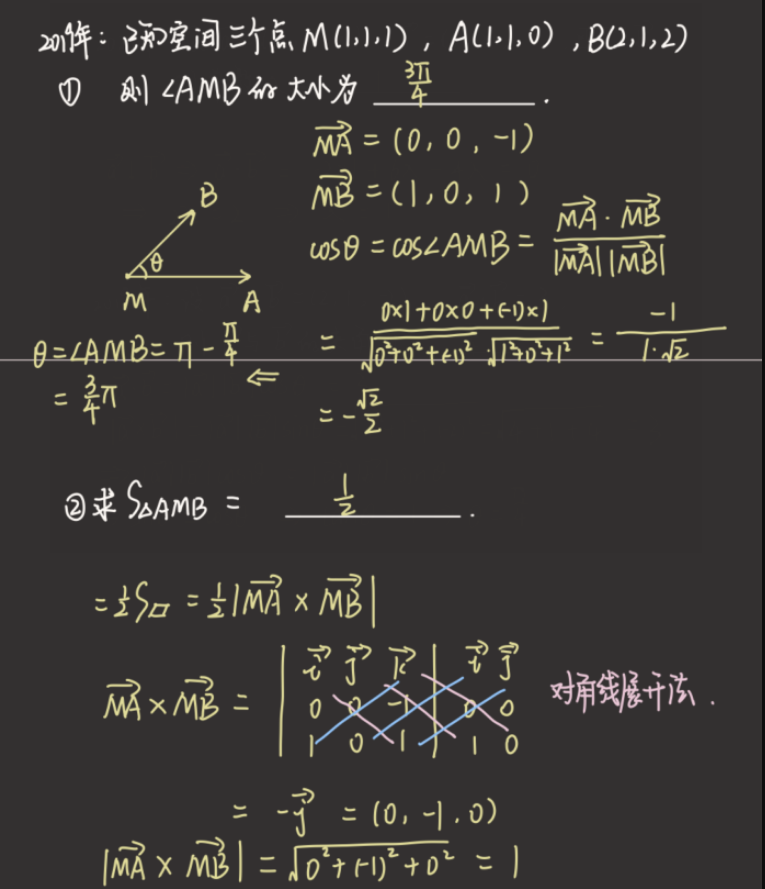 2019年：已知空间三个点 M(1,1,1) , A(1,1,0) , B(2,1,2)
① 则 ∠AMB 的大小为 3π/4 .
MA⃗ = (0, 0, -1)
MB⃗ = (1, 0, 1)
B
θ
M A
cosθ = cos∠AMB = MA⃗ · MB⃗ / |MA⃗| |MB⃗|
= 0×1+0×0+(-1)×1 / √(0²+0²+(-1)²) · √(1²+0²+1²) = -1 / 1·√2
= -√2/2
⇐
θ = ∠AMB = π - π/4
= 3/4 π
② 求 S△AMB = 1/2 .
= 1/2 S▱ = 1/2 |MA⃗ × MB⃗|
MA⃗ × MB⃗ = | i⃗ j⃗ k⃗ | i⃗ j⃗
0 0 -1 0 0
1 0 1 | 1 0
对角线展开法 .
= -j⃗ = (0, -1, 0)
|MA⃗ × MB⃗| = √(0²+(-1)²+0²) = 1